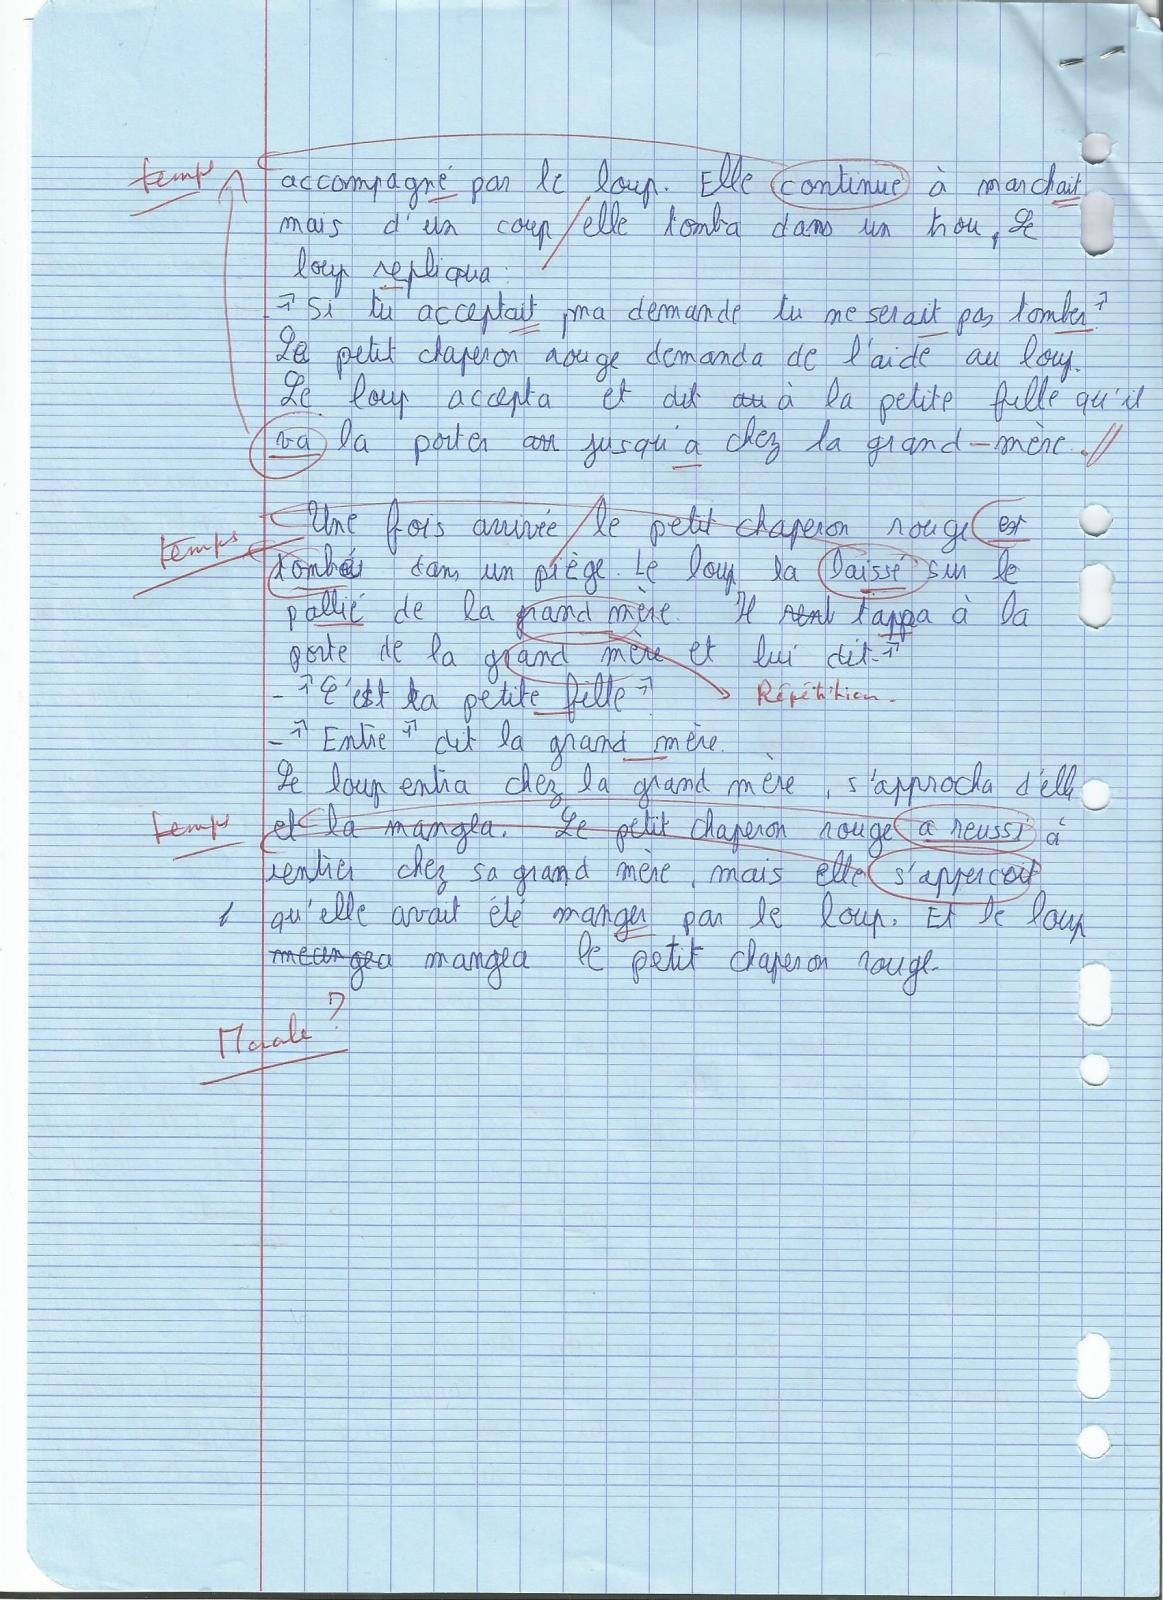 temps
accompagné par le loup. Elle continue à marchait
mais d'un coup / elle tomba dans un trou, Le
loup repliqua :
- "Si tu acceptait ma demande tu ne serait pas tomber"
Le petit chaperon rouge demanda de l'aide au loup.
Le loup accepta et dit au à la petite fille qu'il
va la porter au jusqu'a chez la grand-mère. //
Une fois arrivée / le petit chaperon rouge est
temps
tombés dans un piège. Le loup la laissé sur le
pallié de la grand mère. Il tappa à la
porte de la grand mère et lui dit-"
- "C'est ta petite fille"
Répétition.
- "Entre" dit la grand mère.
Le loup entra chez la grand mère, s'approcha d'elle
temps
et la mangea. Le petit chaperon rouge a reussi à
rentrer chez sa grand mère, mais elle s'apperçoit
qu'elle avait été manger par le loup. Et le loup
meangea mangea le petit chaperon rouge.
Morale ?